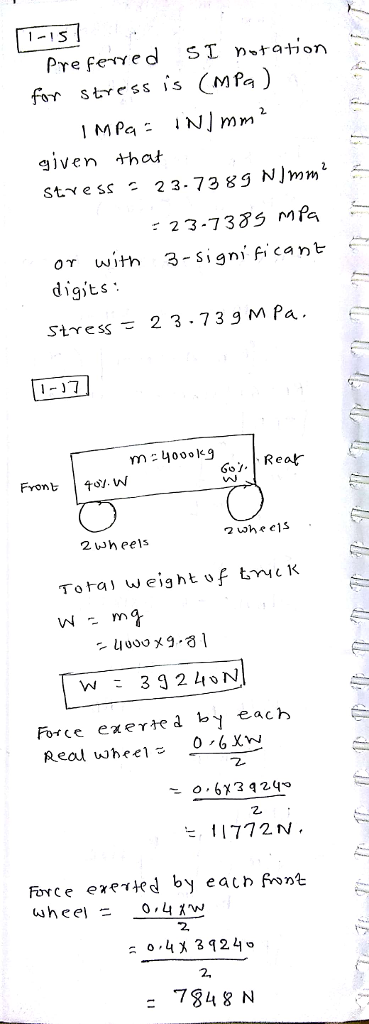 1-15
Preferred SI notation
for stress is (MPa)
1 MPa = 1N/mm²
given that
stress = 23.7389 N/mm²
= 23.7389 MPa
or with 3-significant
digits:
stress = 23.739 MPa.
1-17
m=4000kg
Front 40%.W 60%. W Rear
2 wheels 2 wheels
Total weight of truck
W = mg
= 4000x9.81
W = 39240N
Force exerted by each
Real wheel = 0.6XW
2
= 0.6X39240
2
= 11772N.
Force exerted by each front
wheel = 0.4XW
2
= 0.4X39240
2
= 7848 N